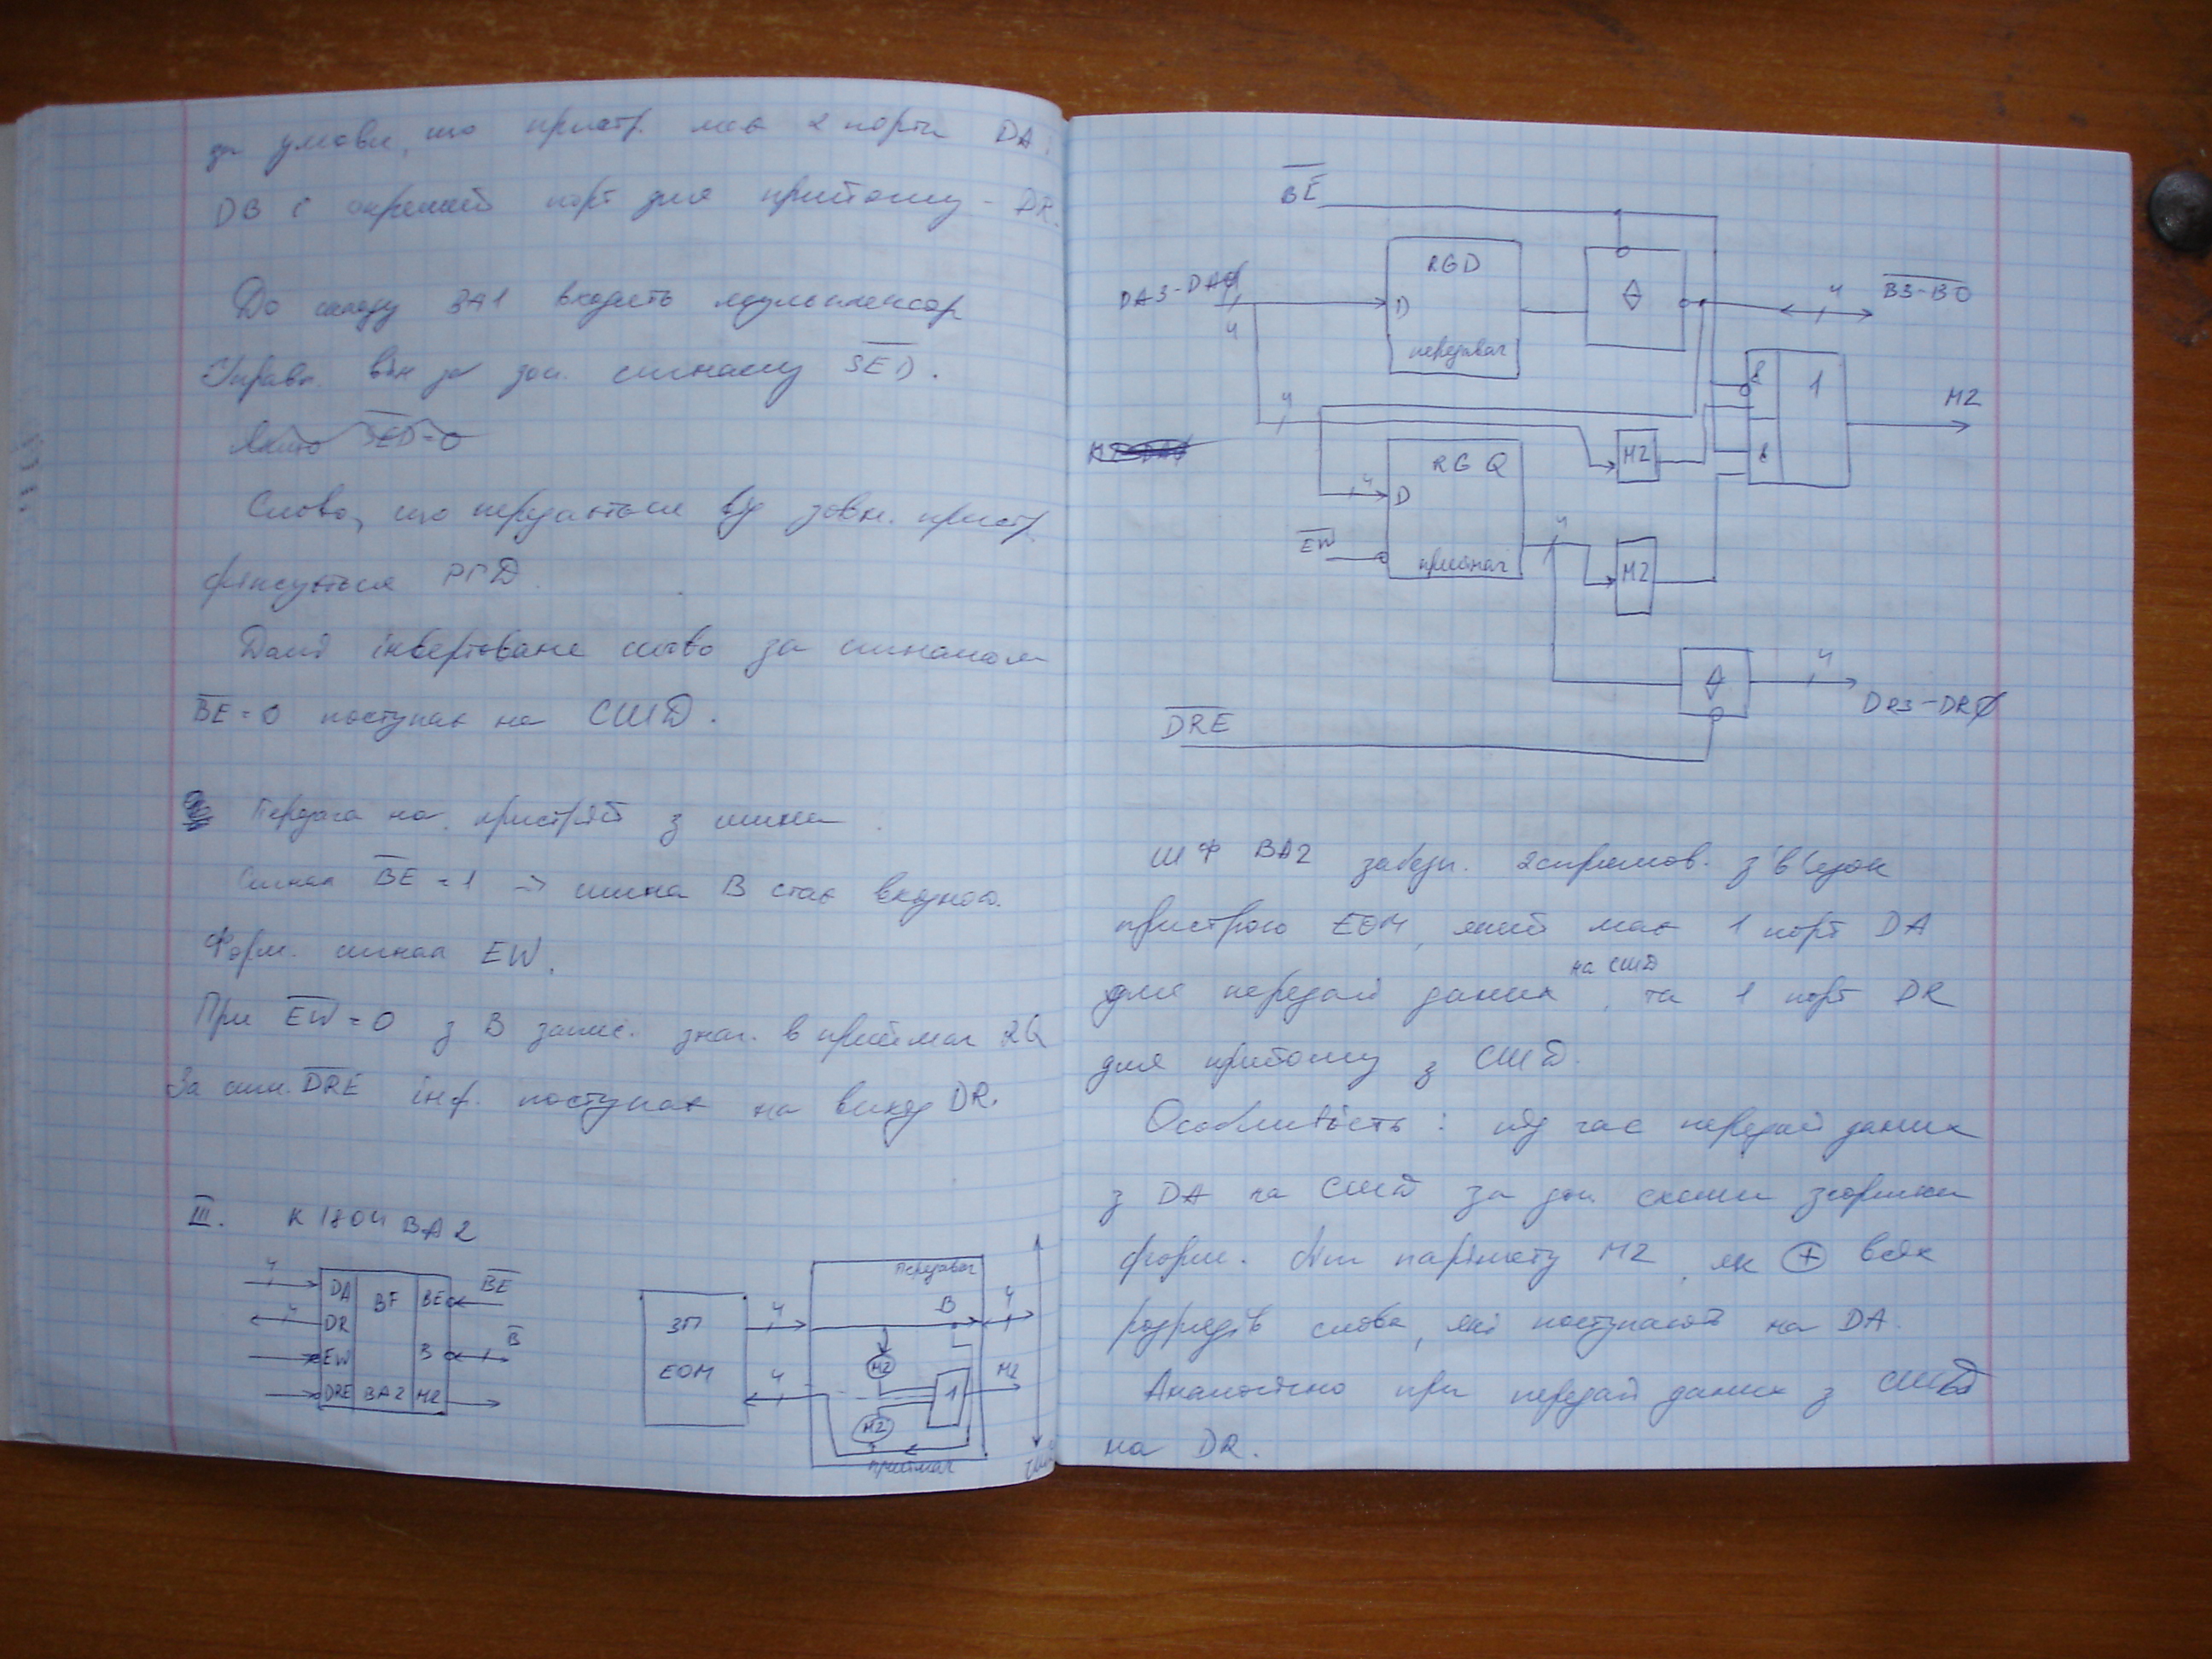 за умови, що пристр. має 2 порти DA і
DB і окремий порт для прийому - DR.
До складу ВА1 входить мультиплексор
Управл. він за доп. сигналу SED.
Якщо SED=0
Слово, що передається від зовн. пристр.
фіксується РГD.
Далі інвертоване слово за сигналом
BE=0 поступає на СШД.
Передача на пристрій з шини.
Сигнал BE=1 → шина B стає входною.
Форм. сигнал EW.
При EW=0 з B запис. знач. в приймач RQ
За сигн. DRE інф. поступає на вихід DR.
III. К1804 ВА2
4 DA BF BE BE
4 DR
EW B B
DRE BA2 M2
ЗП
ЕОМ
4
4
передавач
B 4
M2
1 M2
M2
приймач
BE
DA3-DA0
4
RGD
D
передавач
4 B3-B0
& 1
M2
4
M2
&
RG Q
4 D
EW
приймач
4
M2
4
DR3-DR0
DRE
ШФ ВА2 забезп. 2спрямов. зв'язок
пристрою ЕОМ, який має 1 порт DA
для передачі даних на СШД, та 1 порт DR
для прийому з СШД.
Особливість: під час передачі даних
з DA на СШД за доп. схеми згортки
форм. біт парітету M2, як ⊕ всіх
розрядів слова, які поступають на DA.
Аналогічно при передачі даних з СШД
на DR.